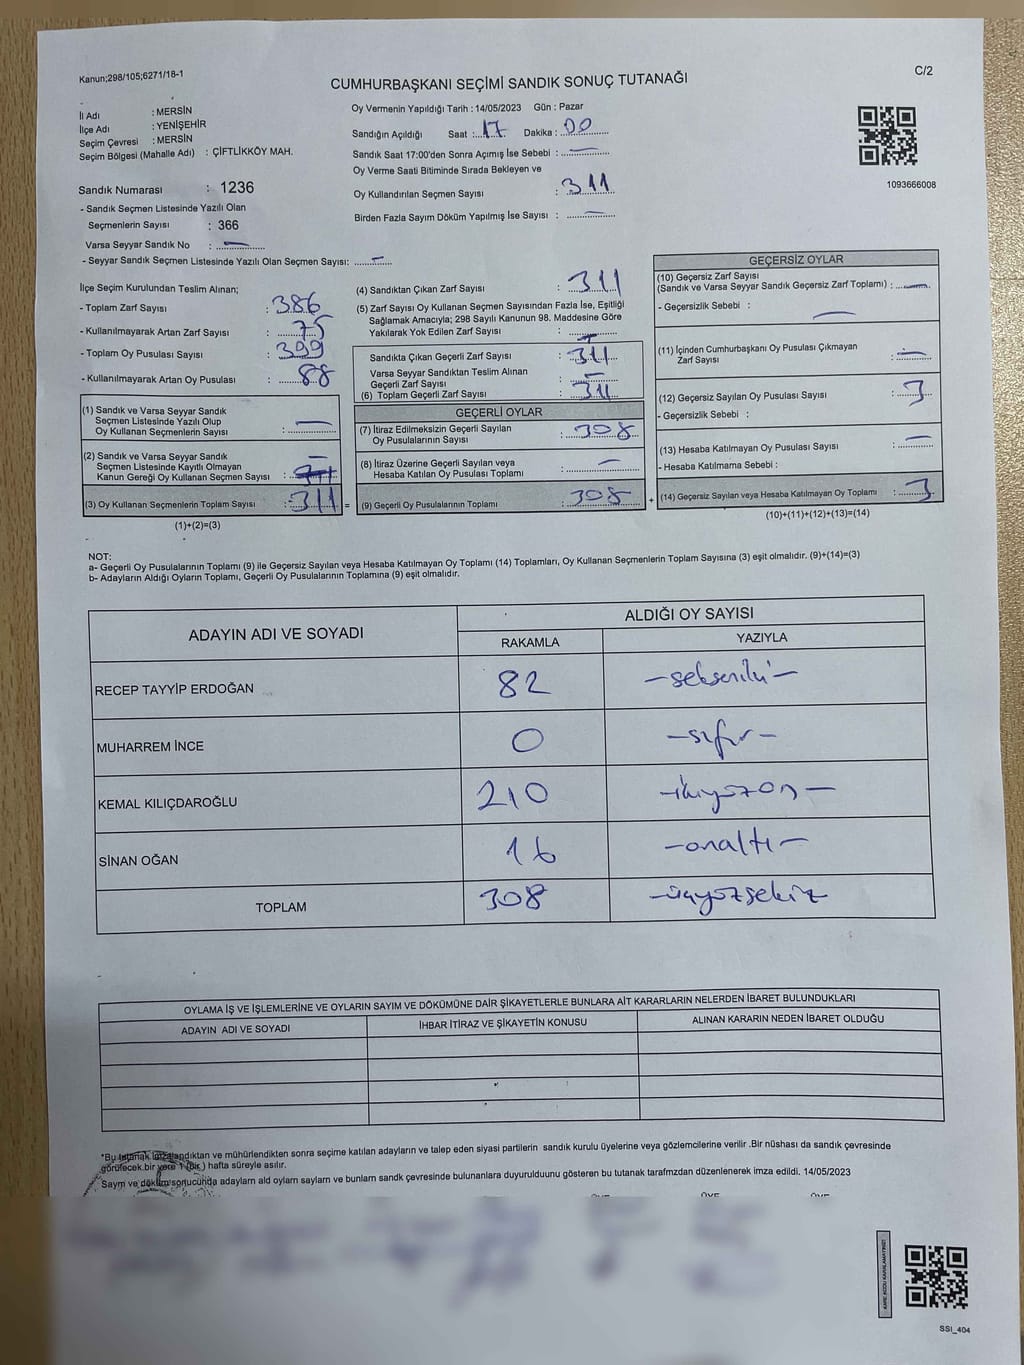 Kanun;298/105;6271/18-1
C/2
CUMHURBAŞKANI SEÇİMİ SANDIK SONUÇ TUTANAĞI
İl Adı : MERSİN
İlçe Adı : YENİŞEHİR
Seçim Çevresi : MERSİN
Seçim Bölgesi (Mahalle Adı) : ÇİFTLİKKÖY MAH.
Sandık Numarası : 1236
- Sandık Seçmen Listesinde Yazılı Olan
Seçmenlerin Sayısı : 366
Varsa Seyyar Sandık No : —
- Seyyar Sandık Seçmen Listesinde Yazılı Olan Seçmen Sayısı: —
Oy Vermenin Yapıldığı Tarih : 14/05/2023 Gün : Pazar
Sandığın Açıldığı Saat : 17 Dakika : 00
Sandık Saat 17:00'den Sonra Açımış İse Sebebi : —
Oy Verme Saati Bitiminde Sırada Bekleyen ve
Oy Kullandırılan Seçmen Sayısı : 311
Birden Fazla Sayım Döküm Yapılmış İse Sayısı : —
1093666008
İlçe Seçim Kurulundan Teslim Alınan;
- Toplam Zarf Sayısı : 386
- Kullanılmayarak Artan Zarf Sayısı : 75
- Toplam Oy Pusulası Sayısı : 399
- Kullanılmayarak Artan Oy Pusulası : 88
(1) Sandık ve Varsa Seyyar Sandık
Seçmen Listesinde Yazılı Olup
Oy Kullanan Seçmenlerin Sayısı : —
(2) Sandık ve Varsa Seyyar Sandık
Seçmen Listesinde Kayıtlı Olmayan
Kanun Gereği Oy Kullanan Seçmen Sayısı : —
(3) Oy Kullanan Seçmenlerin Toplam Sayısı : 311 =
(1)+(2)=(3)
(4) Sandıktan Çıkan Zarf Sayısı : 311
(5) Zarf Sayısı Oy Kullanan Seçmen Sayısından Fazla İse, Eşitliği
Sağlamak Amacıyla; 298 Sayılı Kanunun 98. Maddesine Göre
Yakılarak Yok Edilen Zarf Sayısı : —
Sandıkta Çıkan Geçerli Zarf Sayısı : 311
Varsa Seyyar Sandıktan Teslim Alınan
Geçerli Zarf Sayısı : —
(6) Toplam Geçerli Zarf Sayısı : 311
GEÇERLİ OYLAR
(7) İtiraz Edilmeksizin Geçerli Sayılan
Oy Pusulalarının Sayısı : 308
(8) İtiraz Üzerine Geçerli Sayılan veya
Hesaba Katılan Oy Pusulası Toplamı : —
(9) Geçerli Oy Pusulalarının Toplamı : 308 +
GEÇERSİZ OYLAR
(10) Geçersiz Zarf Sayısı
(Sandık ve Varsa Seyyar Sandık Geçersiz Zarf Toplamı) : —
- Geçersizlik Sebebi : —
(11) İçinden Cumhurbaşkanı Oy Pusulası Çıkmayan
Zarf Sayısı : —
(12) Geçersiz Sayılan Oy Pusulası Sayısı : 3
- Geçersizlik Sebebi :
(13) Hesaba Katılmayan Oy Pusulası Sayısı : —
- Hesaba Katılmama Sebebi :
(14) Geçersiz Sayılan veya Hesaba Katılmayan Oy Toplamı : 3
(10)+(11)+(12)+(13)=(14)
NOT:
a- Geçerli Oy Pusulalarının Toplamı (9) ile Geçersiz Sayılan veya Hesaba Katılmayan Oy Toplamı (14) Toplamları, Oy Kullanan Seçmenlerin Toplam Sayısına (3) eşit olmalıdır. (9)+(14)=(3)
b- Adayların Aldığı Oyların Toplamı, Geçerli Oy Pusulalarının Toplamına (9) eşit olmalıdır.
ADAYIN ADI VE SOYADI ALDIĞI OY SAYISI
RAKAMLA YAZIYLA
RECEP TAYYİP ERDOĞAN 82 —sekseniki—
MUHARREM İNCE 0 —sıfır—
KEMAL KILIÇDAROĞLU 210 —ikiyüzon—
SİNAN OĞAN 16 —onaltı—
TOPLAM 308 —üçyüzsekiz
OYLAMA İŞ VE İŞLEMLERİNE VE OYLARIN SAYIM VE DÖKÜMÜNE DAİR ŞİKAYETLERLE BUNLARA AİT KARARLARIN NELERDEN İBARET BULUNDUKLARI
ADAYIN ADI VE SOYADI İHBAR İTİRAZ VE ŞİKAYETİN KONUSU ALINAN KARARIN NEDEN İBARET OLDUĞU
*Bu tutanak imzalandıktan ve mühürlendikten sonra seçime katılan adayların ve talep eden siyasi partilerin sandık kurulu üyelerine veya gözlemcilerine verilir .Bir nüshası da sandık çevresinde
görülecek bir yere 1 (bir ) hafta süreyle asılır.
Sayım ve döküm sonucunda adayların ald oyların sayları ve bunların sandk çevresinde bulunanlara duyurulduunu gösteren bu tutanak tarafmzdan düzenlenerek imza edildi. 14/05/2023
SSI_404